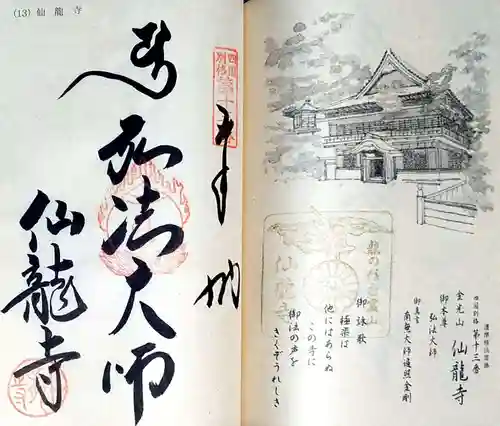 (13) 仙龍寺
奉納
弘法大師
仙龍寺
四国
別格
第十三番
仙龍寺
四国別格 第十三番
金光山 仙龍寺
御本尊
弘法大師
御真言
南無大師遍照金剛
御詠歌
極楽は
他にはあらぬ
この寺に
御法の声を
きくぞうれしき